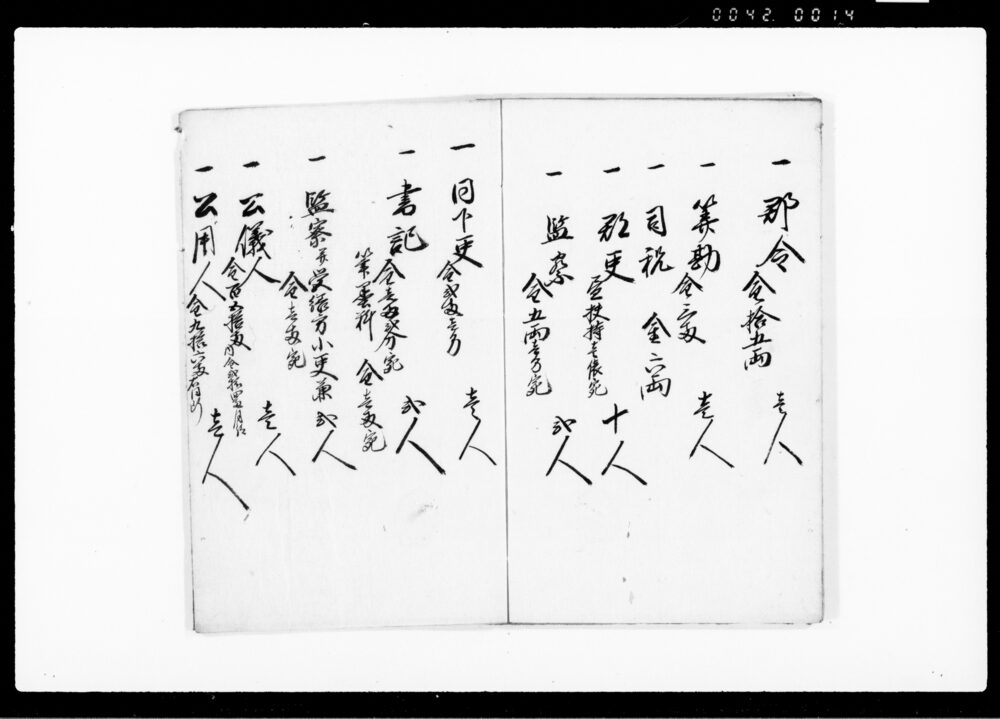 0042.0014
一 郡令 金拾五両 壱人
一 算勘 金六両 壱人
一 司税 金六両
一 郡吏 壱扶持壱俵宛 十人
一 監察 金五両壱分宛 弐人
一 同下吏 金弐両壱分 壱人
一 書記 金壱両弐分宛 弐人
筆墨料 金壱両宛
一 監察 方小吏兼 弐人
金壱両宛
一 公儀人 金百五拾両 壱人
一 公用人 金九拾六両 壱人